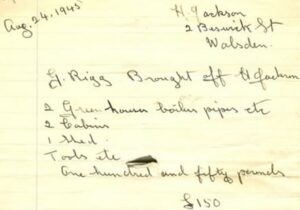 Aug. 24. 1945
H Jackson
2 Beswick St
Walsden.
G. Rigg Brought off H Jackson
2 Greenhouses boilers pipes etc
2 Cabins
1 Shed.
Tools etc
One hundred and fifty pounds
£150